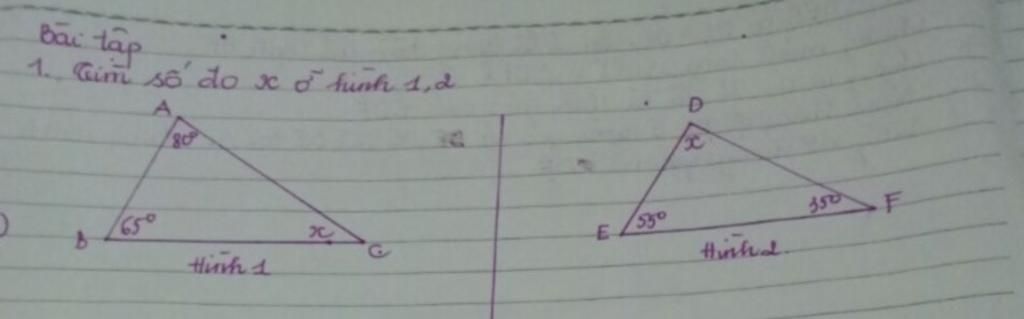 Bài tập
1. Tìm số đo x ở hình 1,2
A
80°
B
65°
x
C
Hình 1
D
x
E
55°
35°
F
Hình 2.